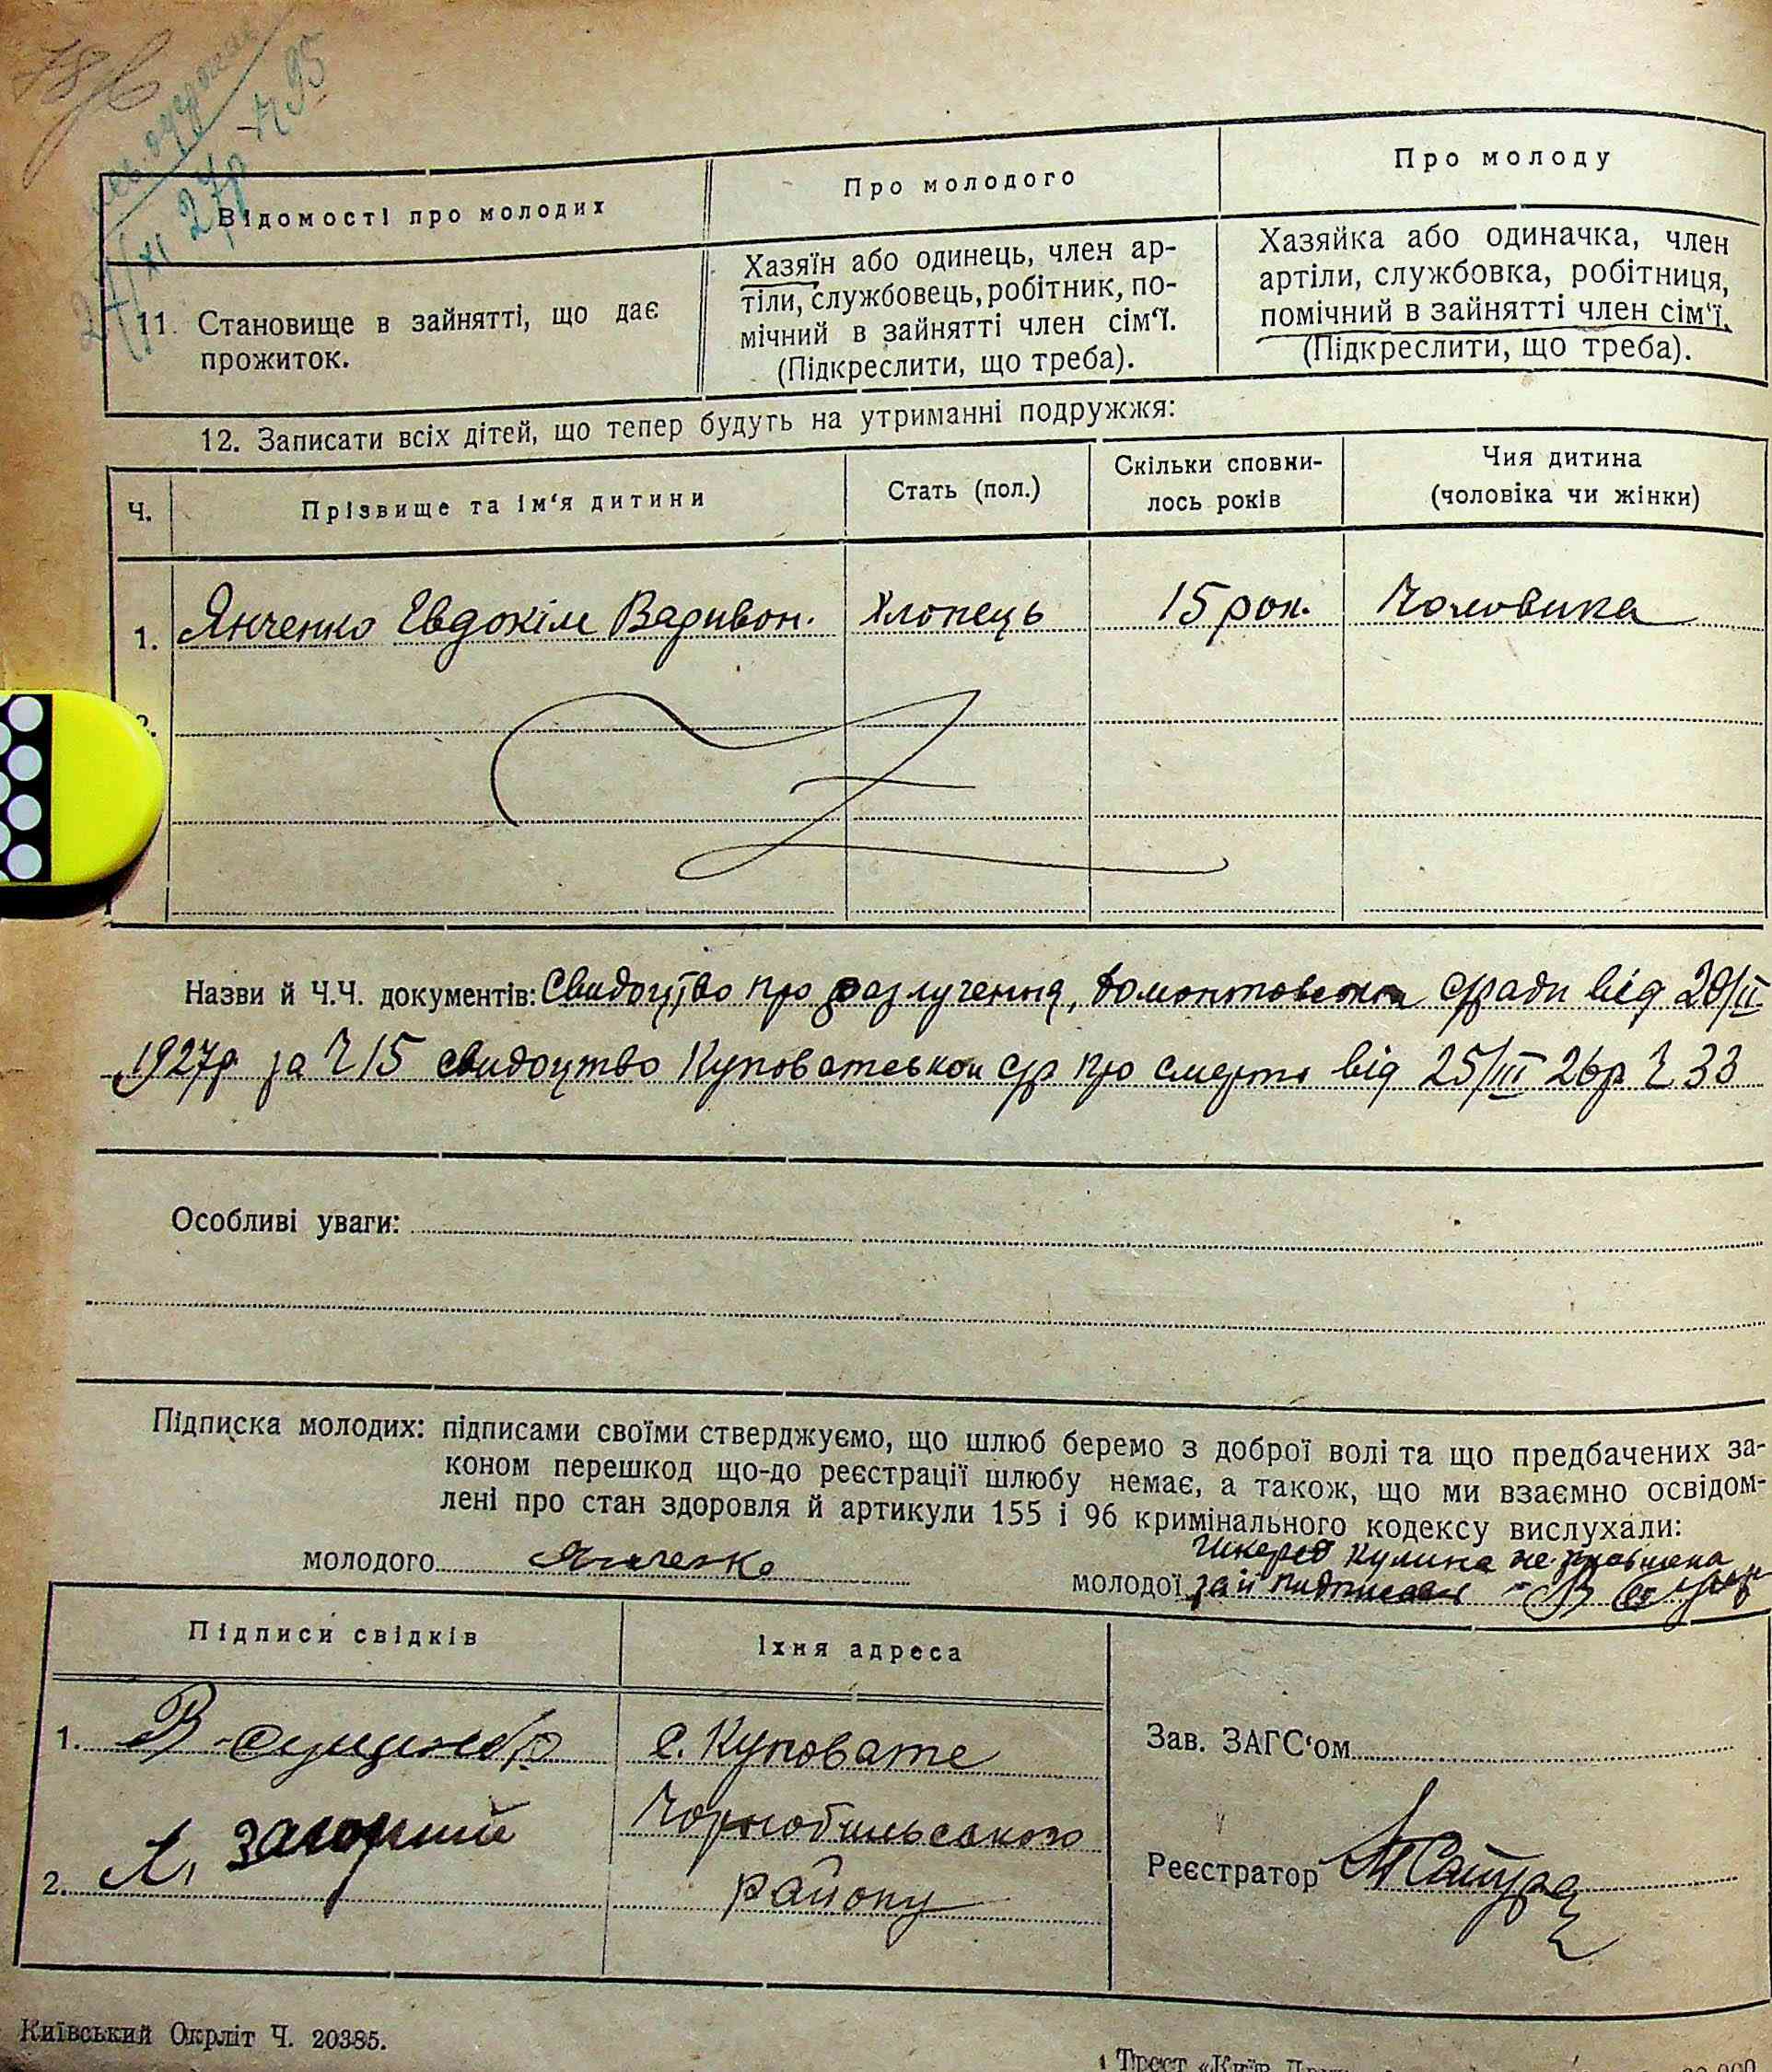 78
27/XI 27р
Відомості про молодих
Про молодого
Про молоду
11. Становище в зайнятті, що дає
прожиток.
Хазяїн або одинець, член ар-
тіли, службовець, робітник, по-
мічний в зайнятті член сім'ї.
(Підкреслити, що треба).
Хазяйка або одиначка, член
артіли, службовка, робітниця,
помічний в зайнятті член сім'ї.
(Підкреслити, що треба).
12. Записати всіх дітей, що тепер будуть на утриманні подружжя:
Ч.
Прізвище та ім'я дитини
Стать (пол.)
Скільки сповни-
лось років
Чия дитина
(чоловіка чи жінки)
1. Янченко Евдокім Варивон. Хлопець 15 рок. Чоловика
Назви й Ч.Ч. документів: Свидоцтво про розлучення, Домонтовской срради від 20/II
1927р за Ч 15 свидоцтво Куповатськои ср про смерть від 25/III 26р Ч. 33
Особливі уваги:
Підписка молодих: підписами своїми стверджуємо, що шлюб беремо з доброї волі та що предбачених за-
коном перешкод що-до реєстрації шлюбу немає, а також, що ми взаємно освідом-
лені про стан здоровля й артикули 155 і 96 кримінального кодексу вислухали:
молодого Янченко
Кулина не
молодої за ії пидписавс
Підписи свідків
Їхня адреса
1. В
с. Куповате
Чорнобильського
2. Л. Загорний
району
Зав. ЗАГС'ом
Реєстратор
Київський Окрліт Ч. 20385.
Трест «Київ